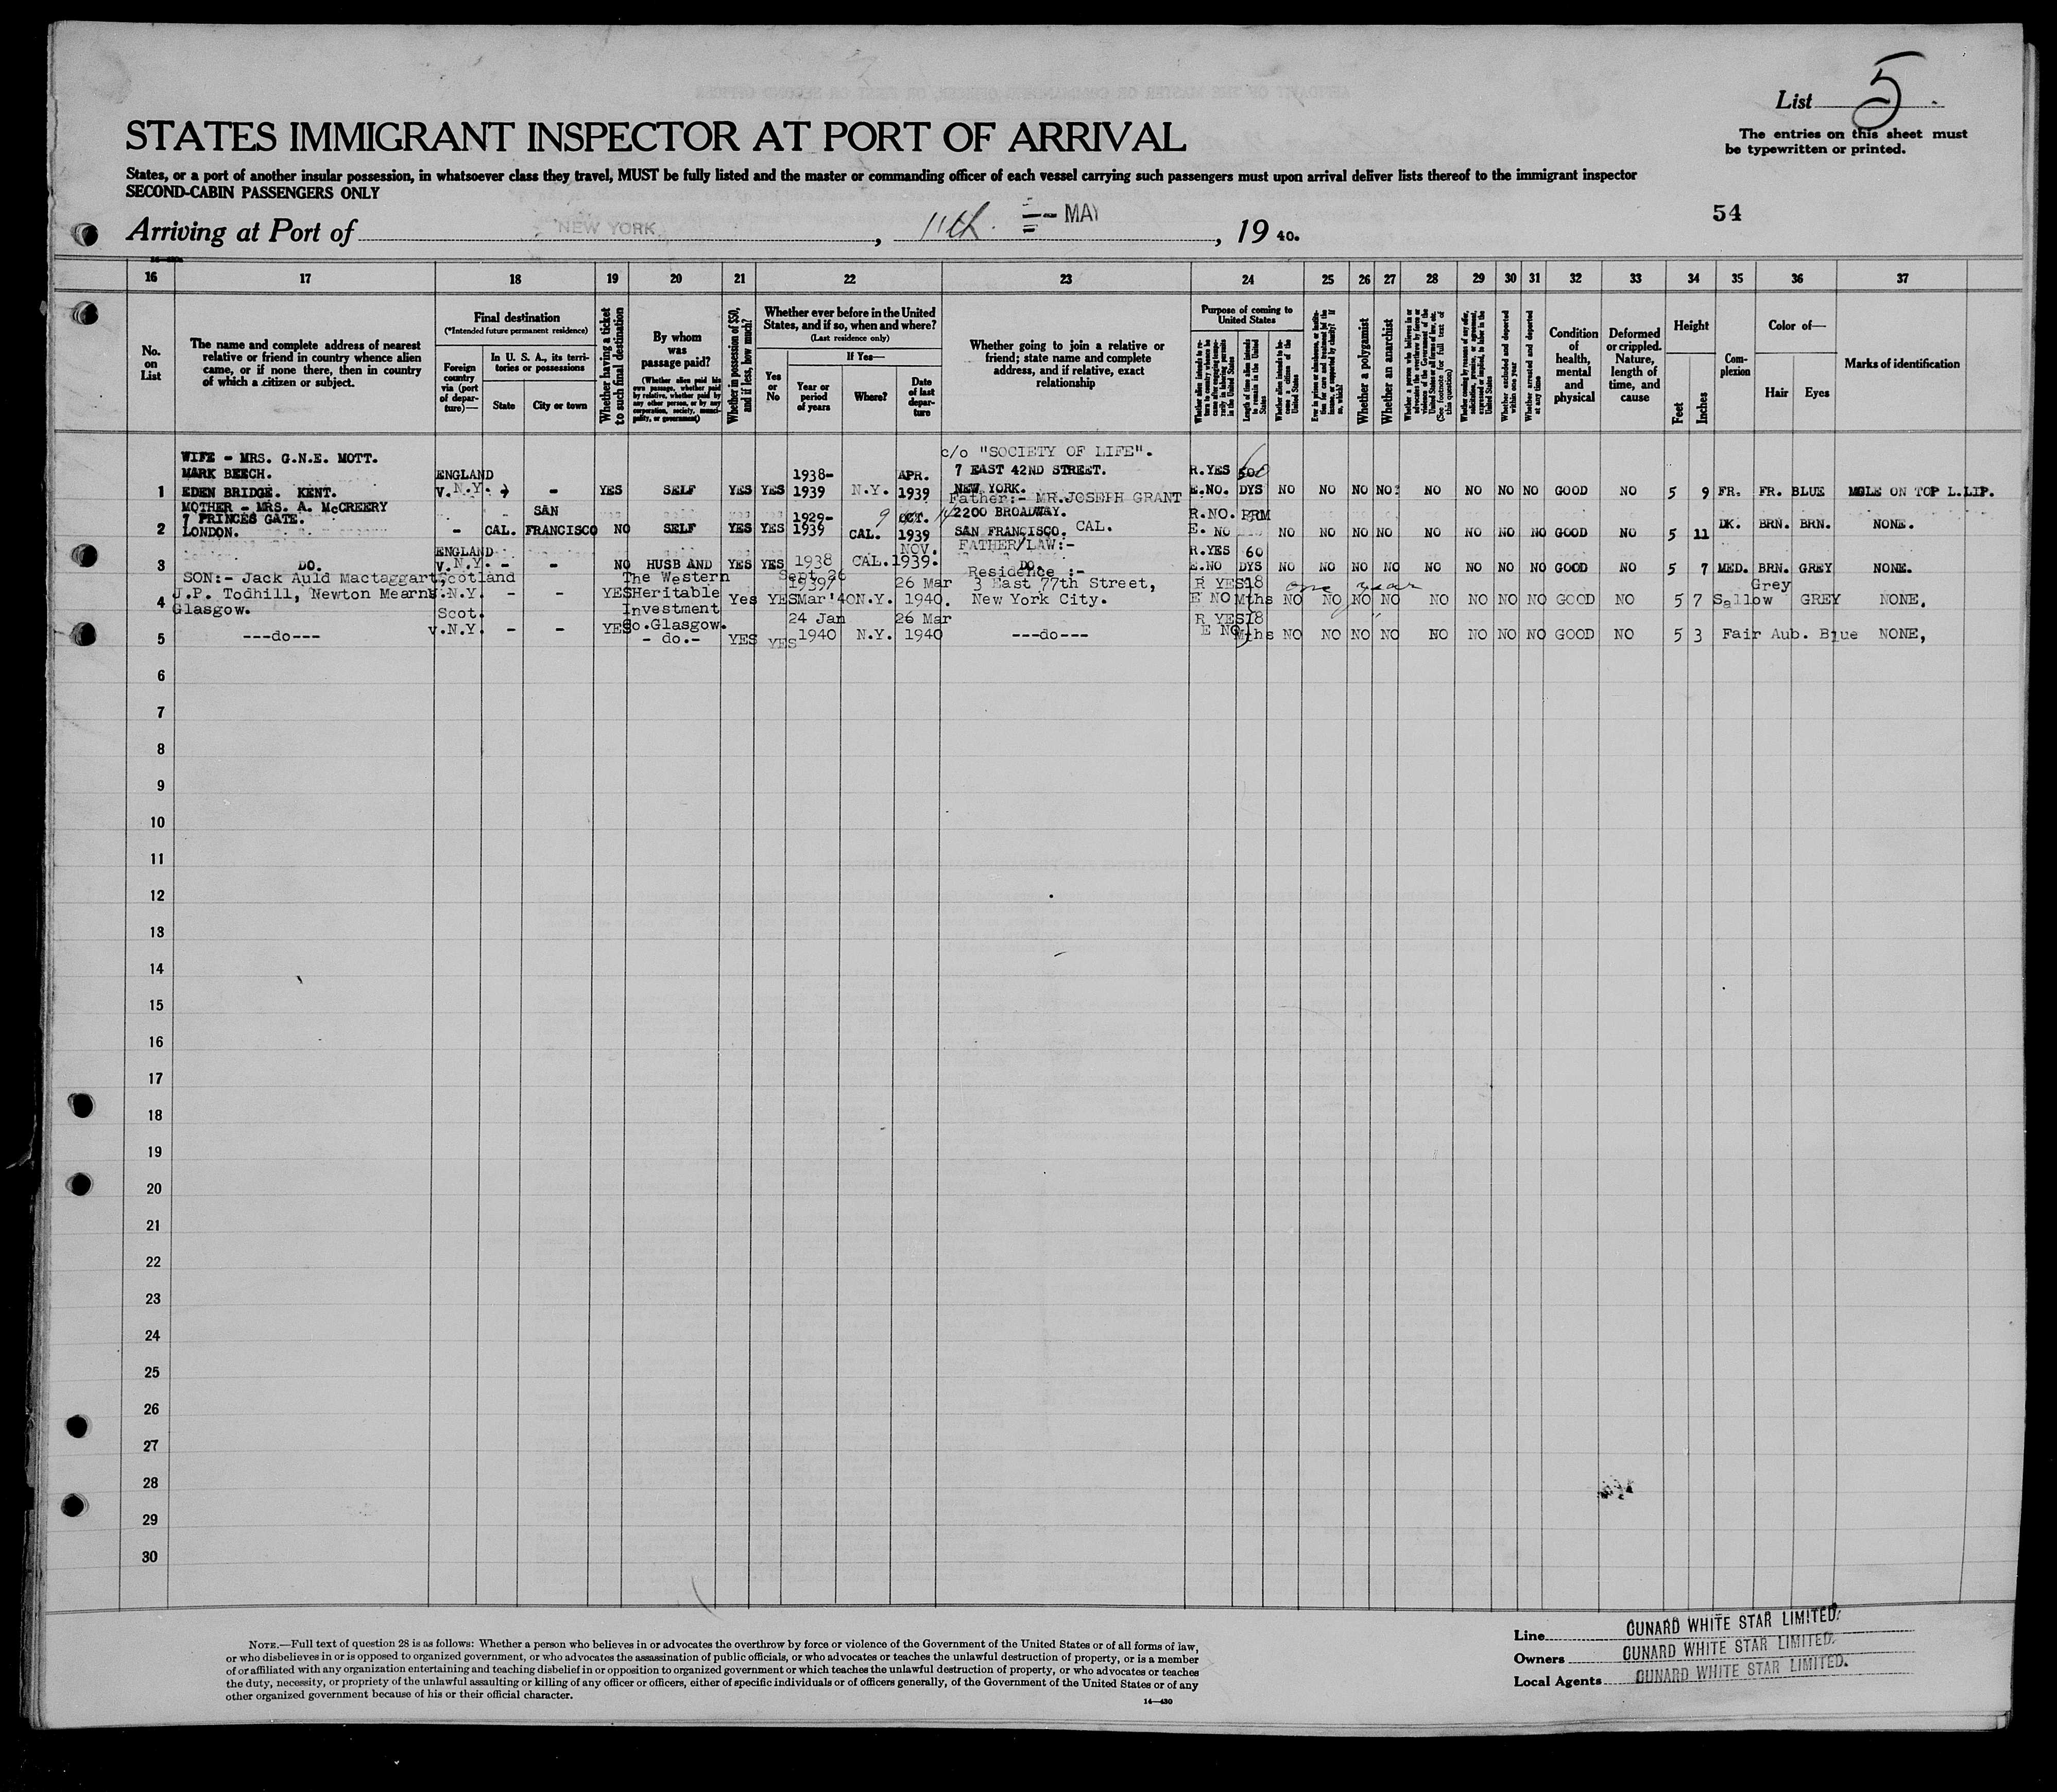 List 5
The entries on this sheet must
be typewritten or printed.
STATES IMMIGRANT INSPECTOR AT PORT OF ARRIVAL
States, or a port of another insular possession, in whatsoever class they travel, MUST be fully listed and the master or commanding officer of each vessel carrying such passengers must upon arrival deliver lists thereof to the immigrant inspector
SECOND-CABIN PASSENGERS ONLY
54
Arriving at Port of NEW YORK, 11th. MAY, 19 40.
16 17 18 19 20 21 22 23 24 25 26 27 28 29 30 31 32 33 34 35 36 37
No. on List
The name and complete address of nearest
relative or friend in country whence alien
came, or if none there, then in country
of which a citizen or subject.
Final destination
(*Intended future permanent residence)
Foreign country via (port of departure)—
In U. S. A., its territories or possessions
State
City or town
Whether having a ticket to such final destination
By whom was passage paid?
(Whether alien paid his own passage, whether paid by relative, whether paid by any other person, or by any corporation, society, municipality, or government)
Whether in possession of $50, and if less, how much?
Whether ever before in the United
States, and if so, when and where?
(Last residence only)
Yes or No
If Yes—
Year or period of years
Where?
Date of last departure
Whether going to join a relative or
friend; state name and complete
address, and if relative, exact
relationship
Purpose of coming to United States
Length of time alien intends to remain in the United States
Whether alien intends to become a citizen of the United States
Whether a polygamist
Whether an anarchist
Whether excluded and deported within one year
Whether arrested and deported at any time
Condition of health, mental and physical
Deformed or crippled. Nature, length of time, and cause
Height
Feet
Inches
Complexion
Color of—
Hair
Eyes
Marks of identification
WIFE - MRS. G.N.E. MOTT.
MARK BEECH.
1 EDEN BRIDGE. KENT. ENGLAND V. N.Y. - YES SELF YES YES 1938-1939 N.Y. APR. 1939 c/o "SOCIETY OF LIFE". 7 EAST 42ND STREET. NEW YORK. R.YES E.NO. 60 DYS NO NO NO NO NO NO NO NO GOOD NO 5 9 FR. FR. BLUE MOLE ON TOP L.LIP.
MOTHER - MRS. A. McCREERY
7 PRINCES GATE.
2 LONDON. - CAL. SAN FRANCISCO NO SELF YES YES 1929-1939 CAL. OCT. 1939 Father:- MR.JOSEPH GRANT 2200 BROADWAY. SAN FRANCISCO. CAL. R.NO. E. NO PRM NO NO NO NO NO NO NO NO GOOD NO 5 11 DK. BRN. BRN. NONE.
3 DO. ENGLAND V. N.Y. - - NO HUSBAND YES YES 1938 CAL. NOV. 1939. FATHER/LAW:- DO. R.YES E.NO 60 DYS NO NO NO NO NO NO NO NO GOOD NO 5 7 MED. BRN. GREY NONE.
SON:- Jack Auld Mactaggart,
J.P. Todhill, Newton Mearns
4 Glasgow. Scotland V.N.Y. - - YES The Western Heritable Investment Co.Glasgow. Yes YES Sept 26 1939/ Mar'40 N.Y. 26 Mar 1940. Residence :- 3 East 77th Street, New York City. R YES E NO 18 Mths one year NO NO NO NO NO NO NO NO GOOD NO 5 7 Sallow Grey GREY NONE.
5 ---do--- Scot. v.N.Y. - - YES - do.- YES YES 24 Jan 1940 N.Y. 26 Mar 1940 ---do--- R YES E NO 18 Mths NO NO NO NO NO NO NO NO GOOD NO 5 3 Fair Aub. Blue NONE,
6
7
8
9
10
11
12
13
14
15
16
17
18
19
20
21
22
23
24
25
26
27
28
29
30
NOTE.—Full text of question 28 is as follows: Whether a person who believes in or advocates the overthrow by force or violence of the Government of the United States or of all forms of law,
or who disbelieves in or is opposed to organized government, or who advocates the assassination of public officials, or who advocates or teaches the unlawful destruction of property, or is a member
of or affiliated with any organization entertaining and teaching disbelief in or opposition to organized government or which teaches the unlawful destruction of property, or who advocates or teaches
the duty, necessity, or propriety of the unlawful assaulting or killing of any officer or officers, either of specific individuals or of officers generally, of the Government of the United States or of any
other organized government because of his or their official character.
14—430
Line CUNARD WHITE STAR LIMITED.
Owners CUNARD WHITE STAR LIMITED.
Local Agents CUNARD WHITE STAR LIMITED.